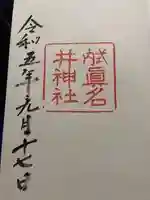 眞名
井神社
令和五年九月十七日